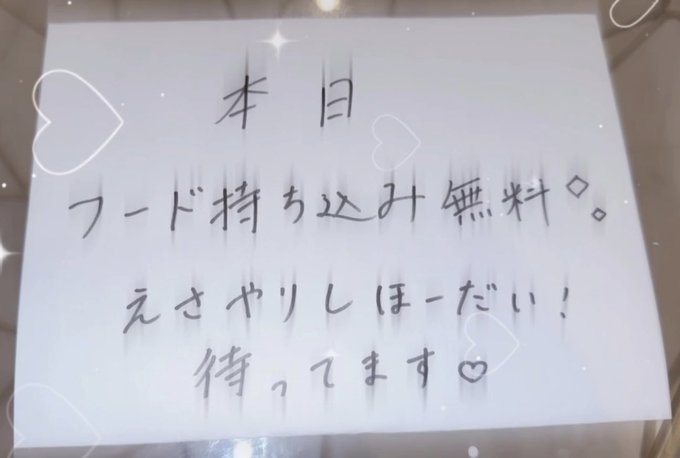 本日
フード持ち込み無料◇◇
えさやりしほーだい!
待ってます♡